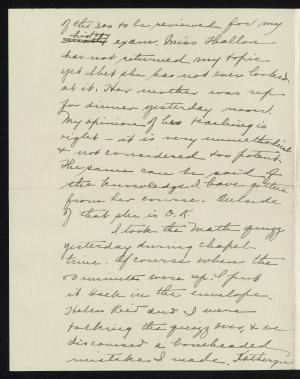 of the 200 to be reviewed for my
history exam. Miss Hallor
has not returned my topic
yet I bet she has not even looked
at it. Her mother was up
for dinner yesterday noon.
My opinion of her teaching is
right - it is very unmethodical
& not considered too potent.
The same can be said of
the knowledge I have gotten
from her course. Outside
of that she is O.K.
I took the Math quizz
yesterday during chapel
time. Of course when the
0 minutes were up I put
it back in the envelope.
Helen Reed and I were
talking the quizz over, & we
discovered a boneheaded
mistake I made. Katheryn